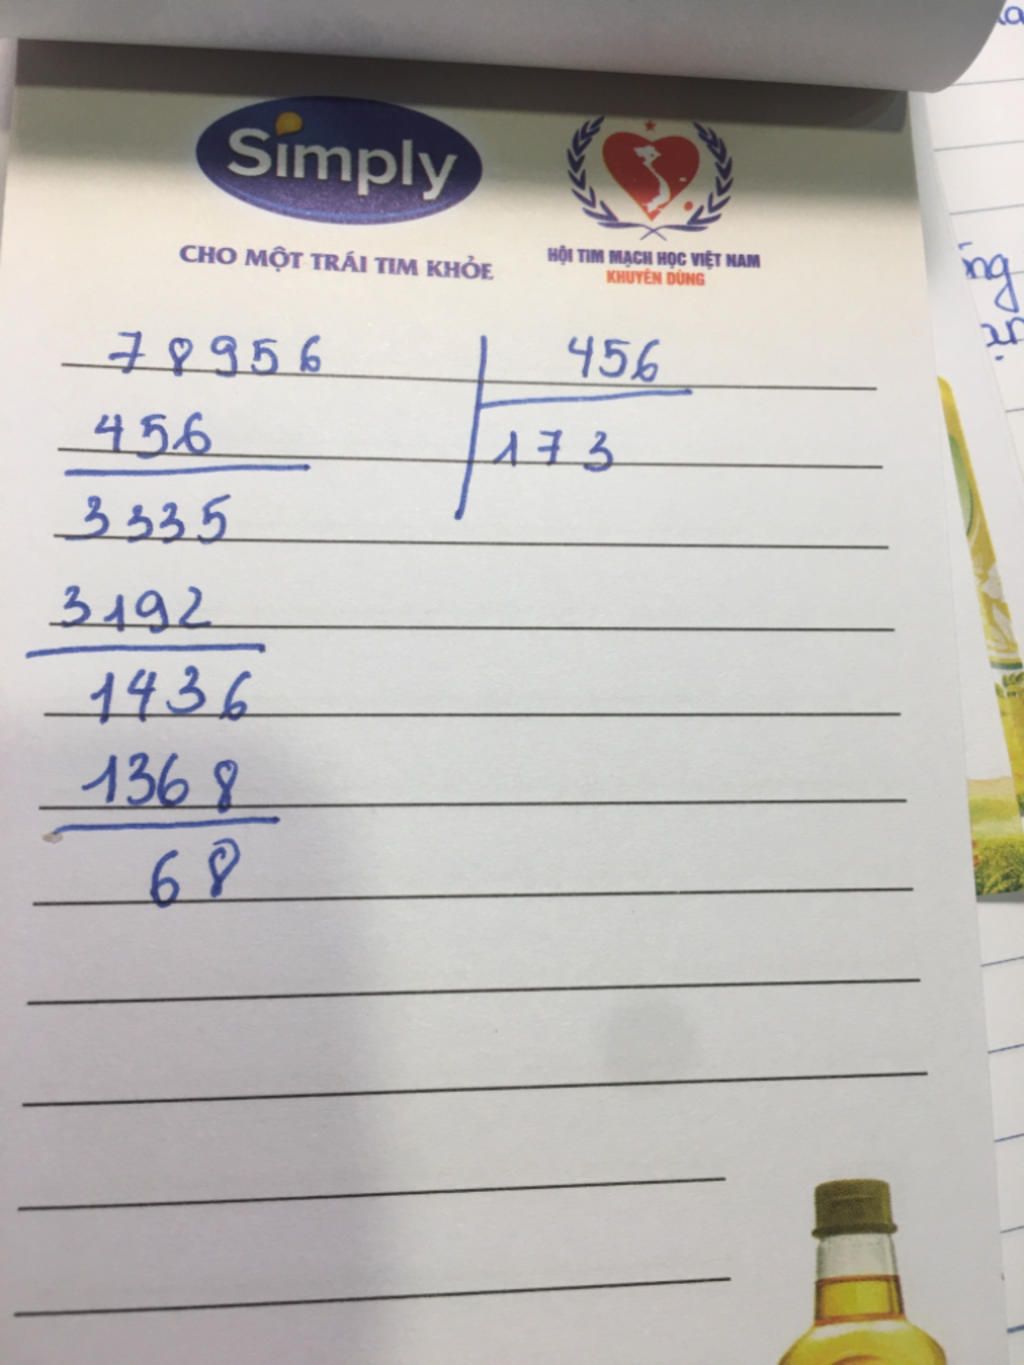 Simply
CHO MỘT TRÁI TIM KHỎE
HỘI TIM MẠCH HỌC VIỆT NAM
KHUYÊN DÙNG
78956 456
456 173
3335
3192
1436
1368
68